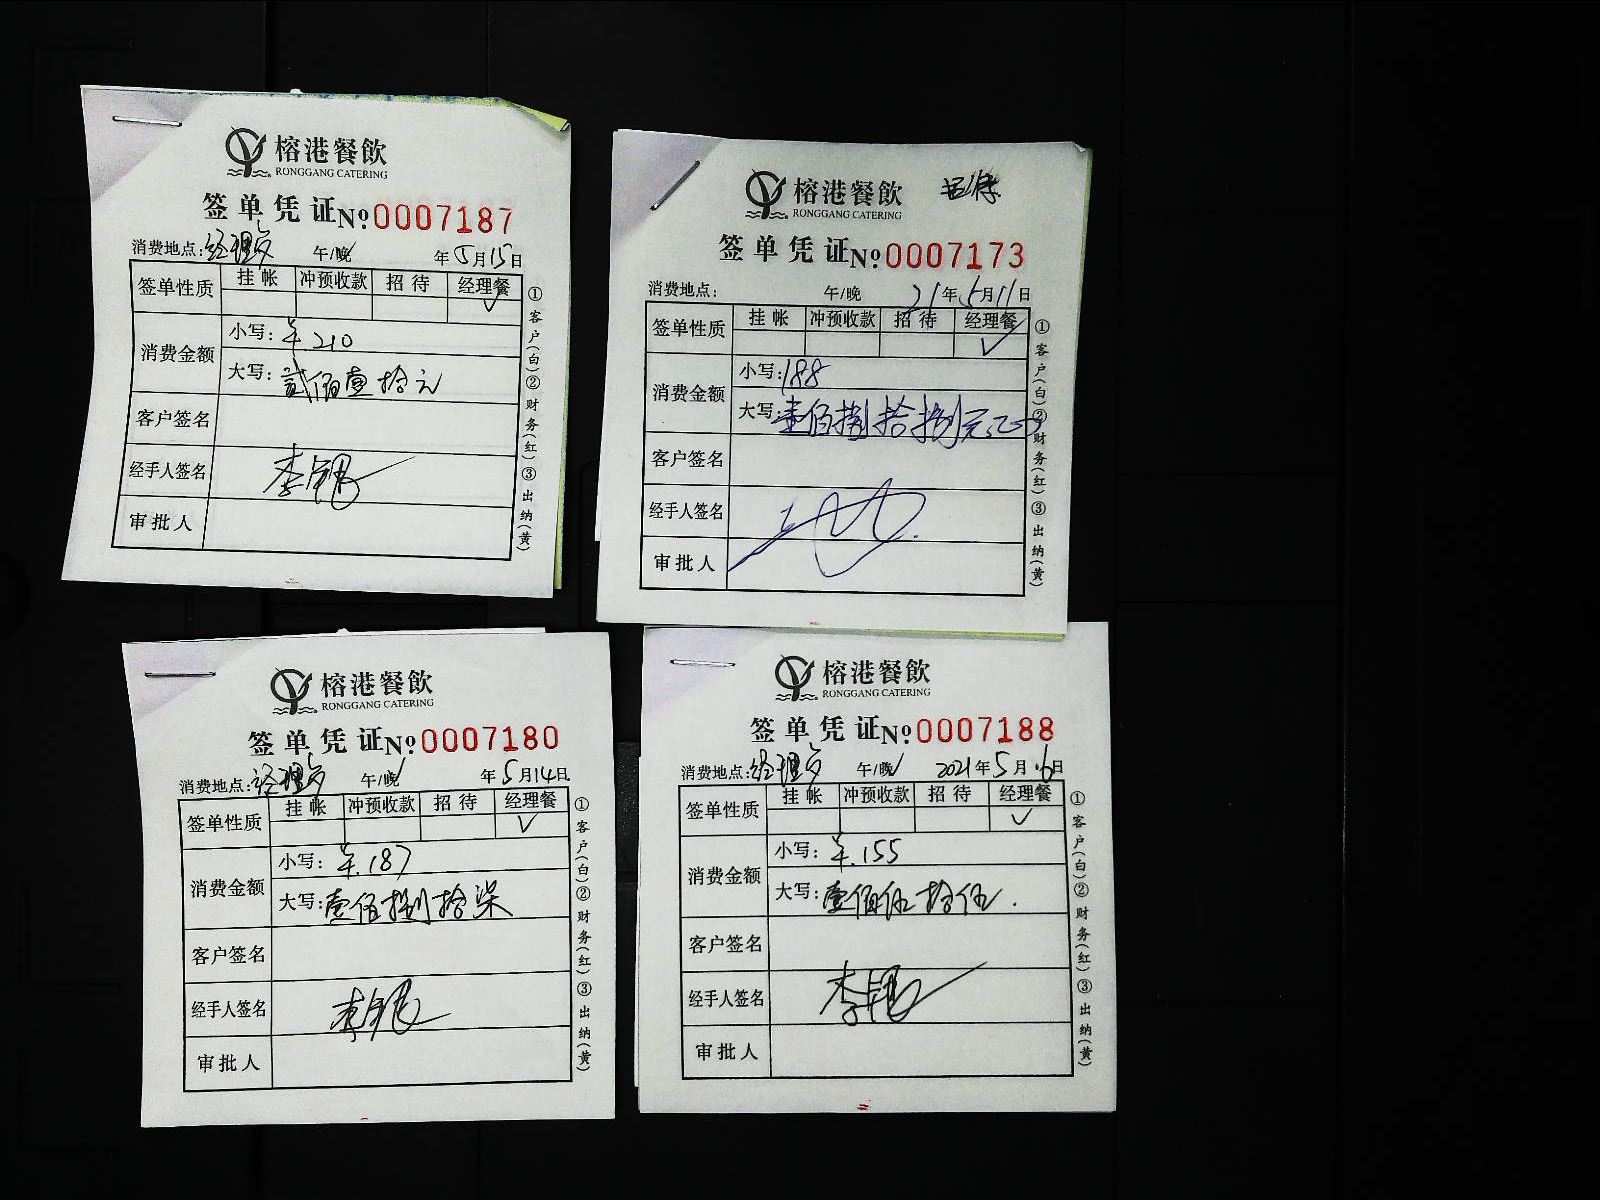 榕港餐飲
RONGGANG CATERING
签单凭证 №0007187
消费地点:经理 午/晚 年5月15日
签单性质 挂帐 冲预收款 招待 经理餐
✓
消费金额 小写: ¥.210
大写: 贰佰壹拾元
客户签名
经手人签名
审批人
①客户(白)②财务(红)③出纳(黄)
榕港餐飲
RONGGANG CATERING
签单凭证 №0007173
消费地点: 午/晚 21年5月11日
签单性质 挂帐 冲预收款 招待 经理餐
✓
消费金额 小写: 188
大写: 壹佰捌拾捌元
客户签名
经手人签名
审批人
①客户(白)②财务(红)③出纳(黄)
榕港餐飲
RONGGANG CATERING
签单凭证 №0007180
消费地点:经理 午/晚 年5月14日
签单性质 挂帐 冲预收款 招待 经理餐
✓
消费金额 小写: ¥.187
大写: 壹佰捌拾柒
客户签名
经手人签名
审批人
①客户(白)②财务(红)③出纳(黄)
榕港餐飲
RONGGANG CATERING
签单凭证 №0007188
消费地点:经理 午/晚 2021年5月16日
签单性质 挂帐 冲预收款 招待 经理餐
✓
消费金额 小写: ¥.155
大写: 壹佰伍拾伍.
客户签名
经手人签名
审批人
①客户(白)②财务(红)③出纳(黄)